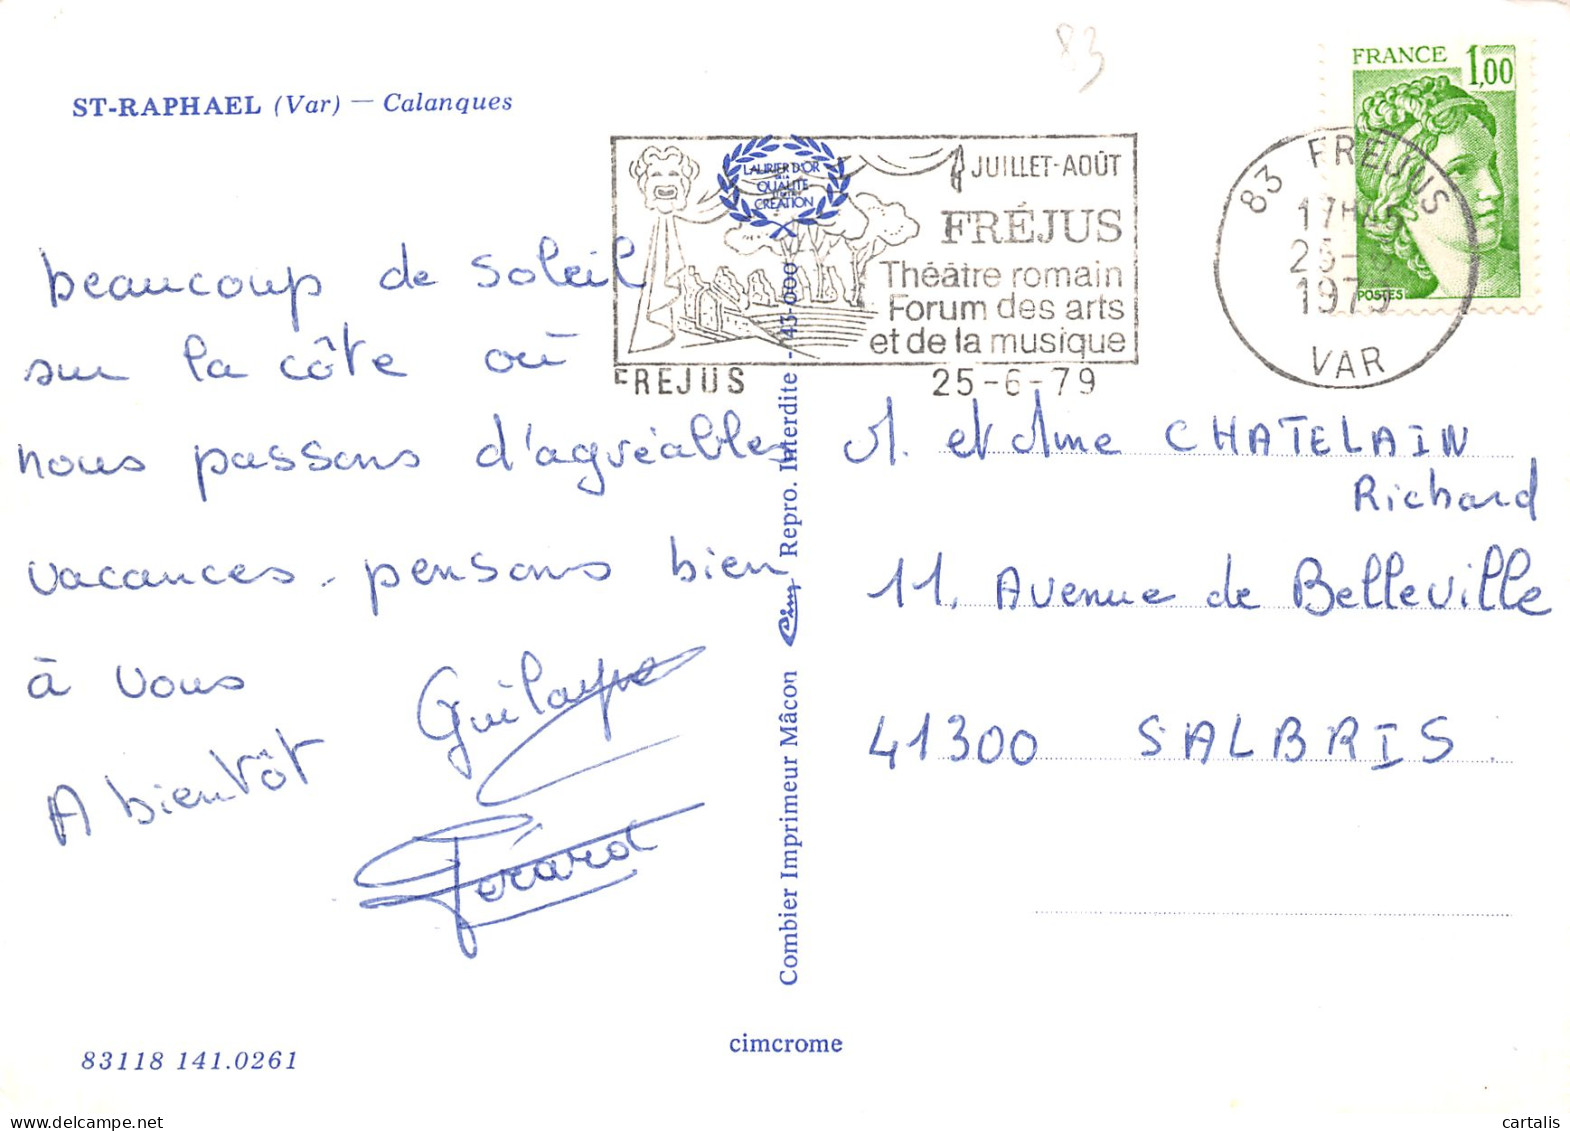 83
FRANCE 1,00
POSTES
ST-RAPHAEL (Var) — Calanques
LAURIER D'OR
DE LA
QUALITÉ
CRÉATION
JUILLET-AOÛT
FRÉJUS
Théâtre romain
Forum des arts
et de la musique
FREJUS 25-6-79
83 FREJUS
1979
VAR
beaucoup de soleil
sur la côte où
nous passons d'agréables
vacances. pensons bien
à vous
A bientôt
Gérard
Combier Imprimeur Mâcon Cim Repro. Interdite - 43-000
M. et Mme CHATELAIN
Richard
11. Avenue de Belleville
41300 SALBRIS.
cimcrome
83118 141.0261
cartalis